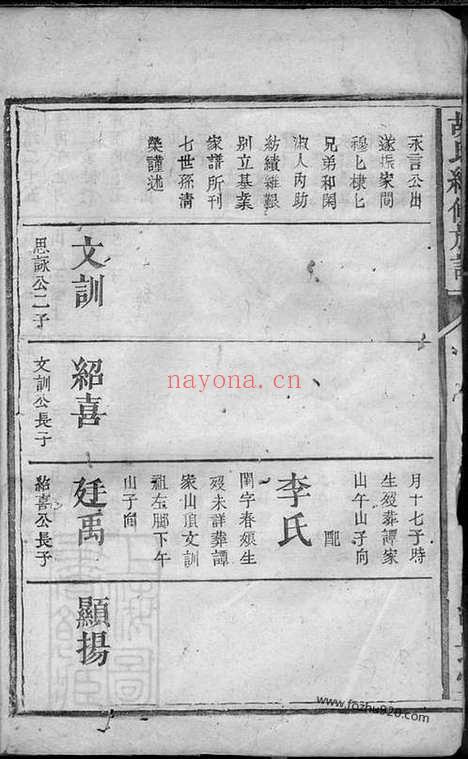 胡氏續修族譜
永言公出
遂振家聞
穆匕棣匕
兄弟和閑
淑人內助
紡績雖艱
別立基業
家譜所刊
七世孫淸
榮謹述
文訓
思詠公二子
紹喜
文訓公長子
月十七子時
生歿葬譚家
山午山子向
配
李氏
閨字春娘生
歿未詳葬譚
家山頂文訓
祖左腳下午
山子向
廷禹
紹喜公長子
顯揚
nayona.cn
www.fozhu920.com